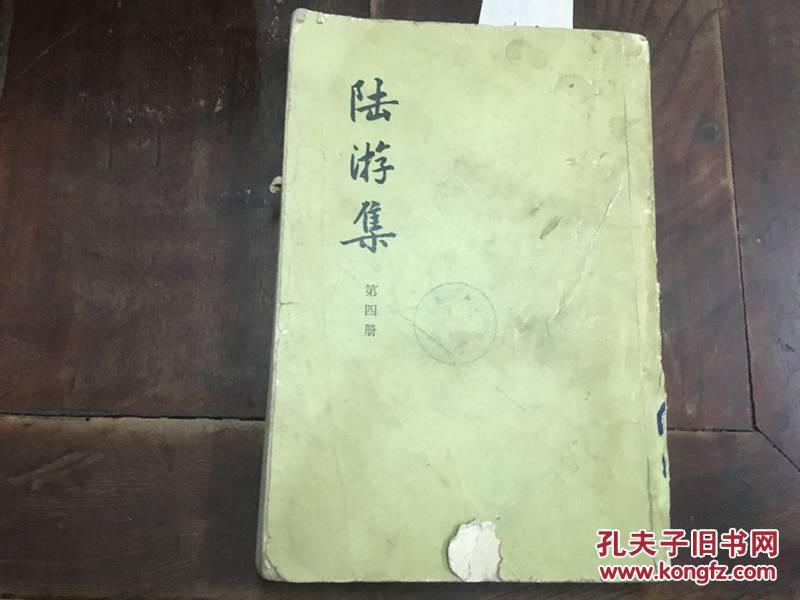 陆游集
第四册
孔夫子旧书网
www.kongfz.com